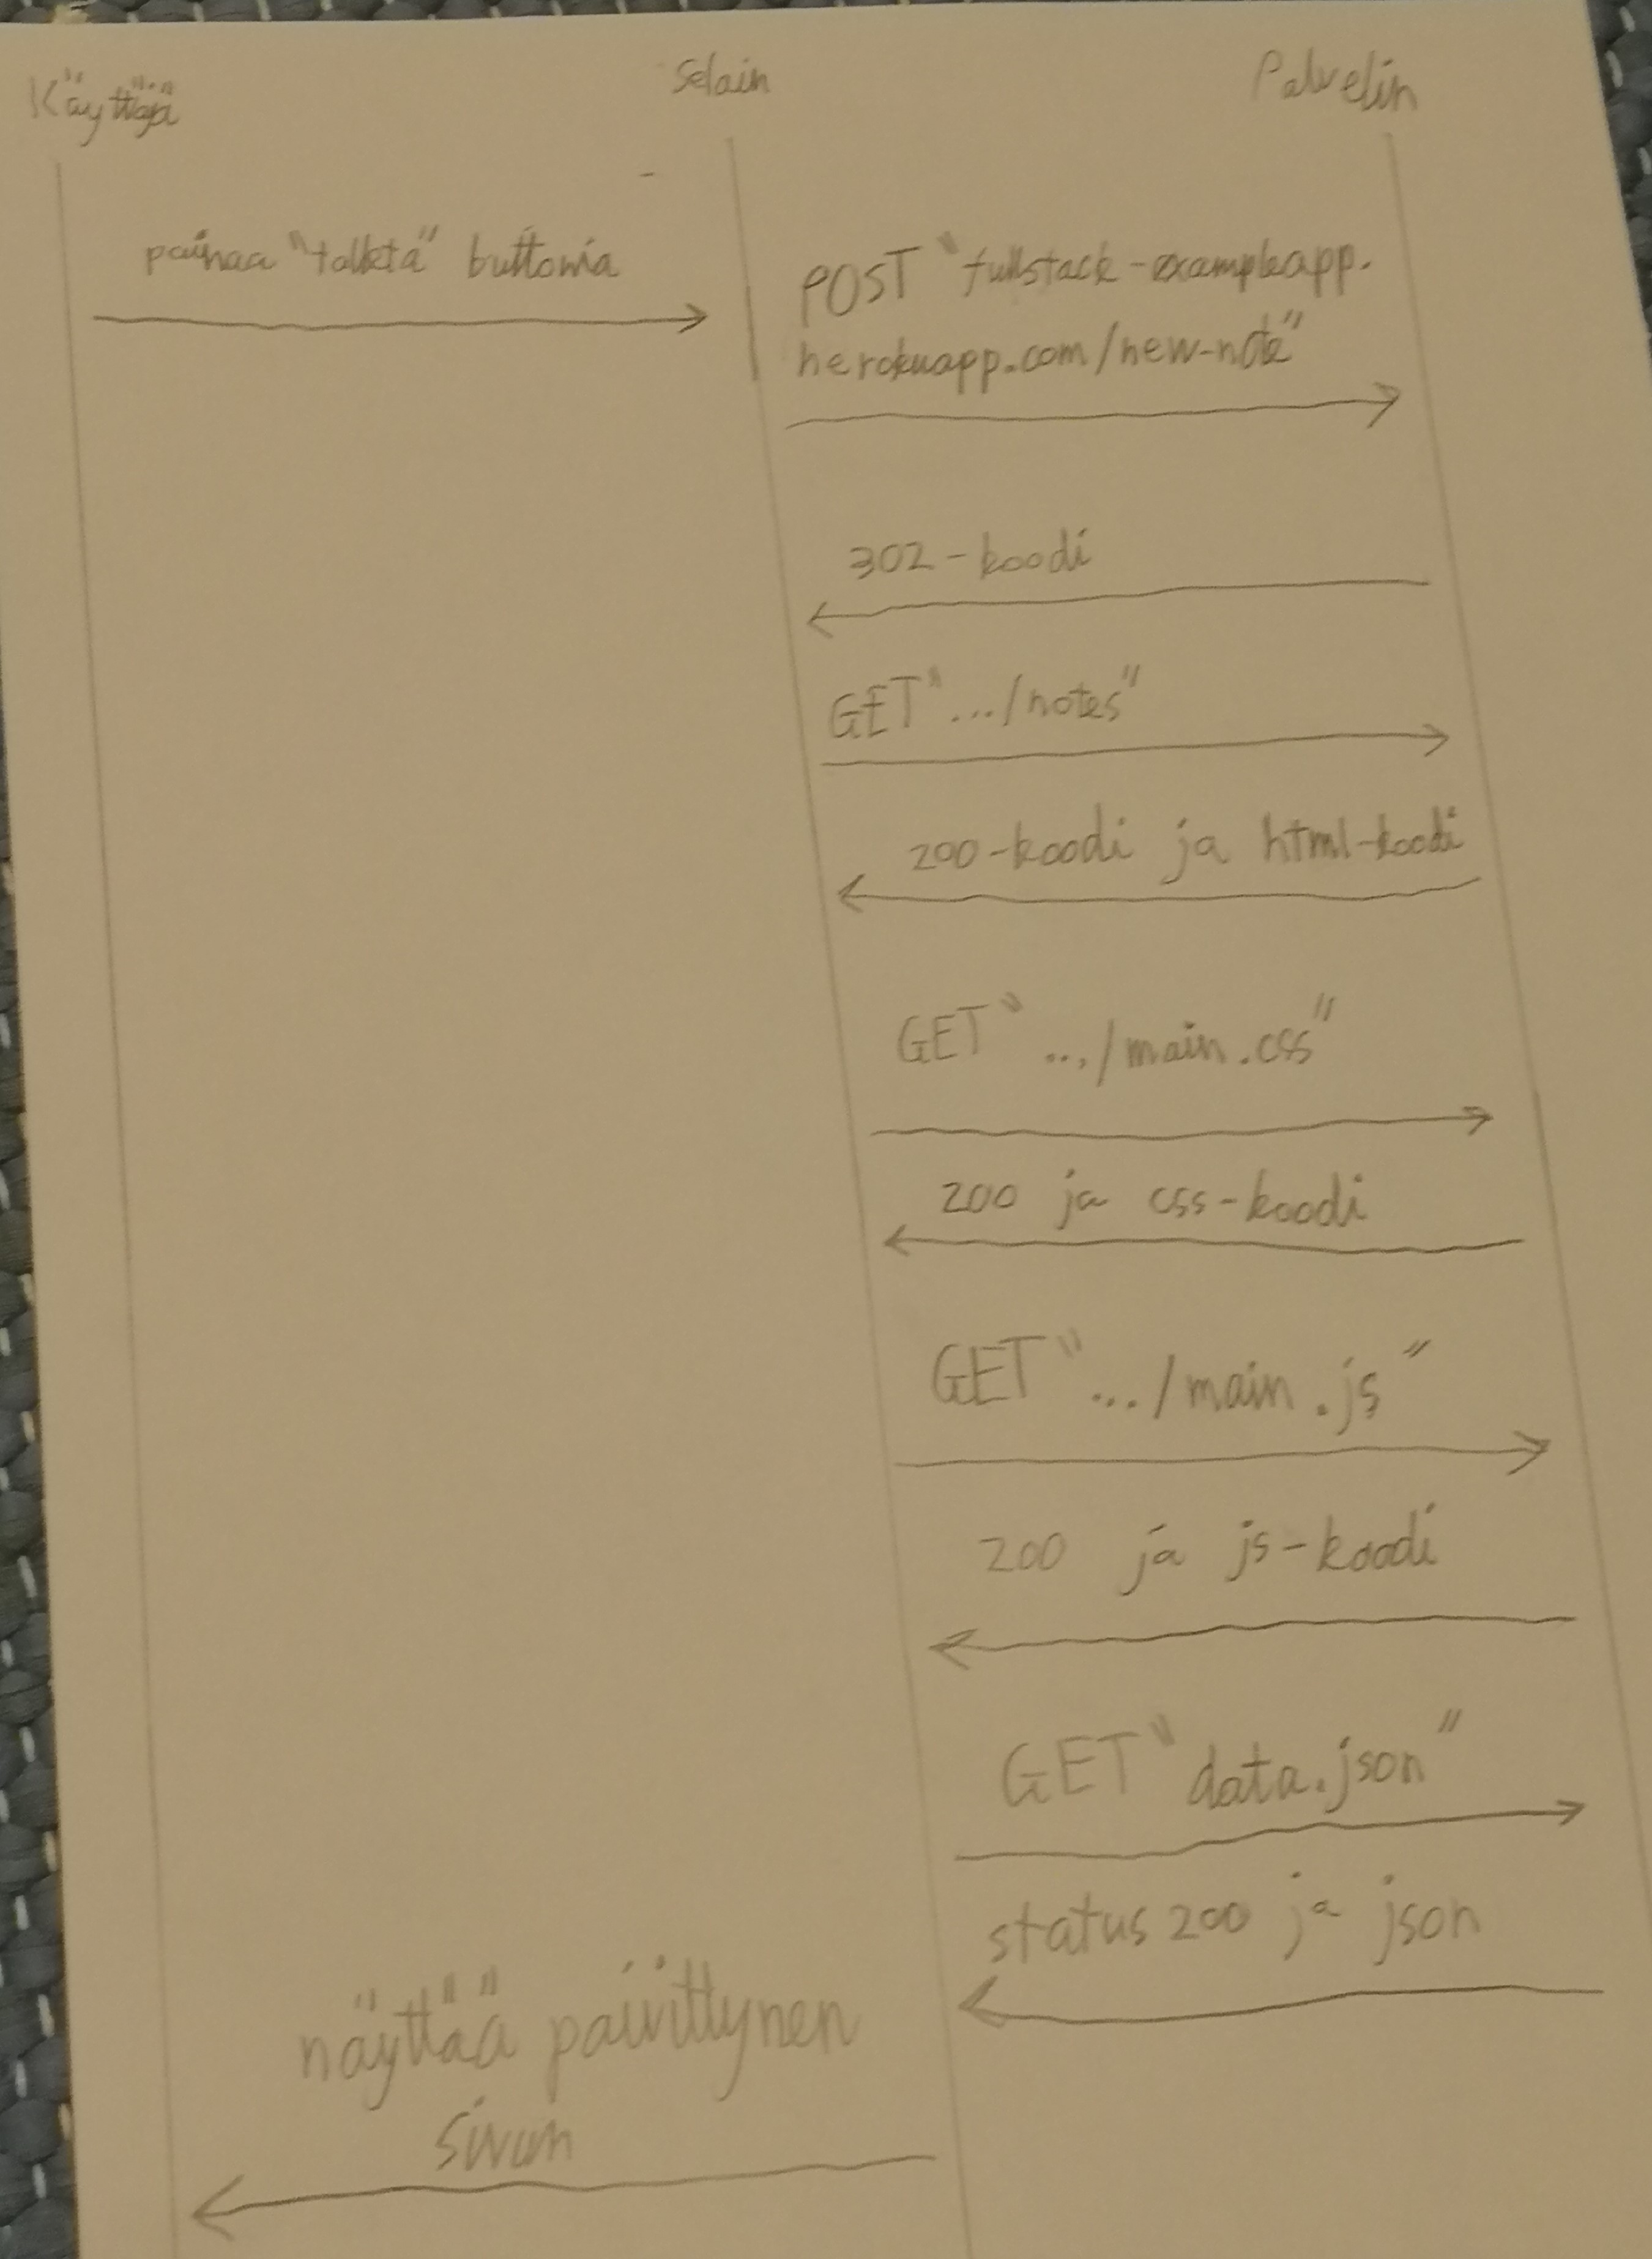 Käyttäjä
Selain
Palvelin
painaa "talleta" buttonia
POST "fullstack-exampleapp.
herokuapp.com/new-note"
302-koodi
GET ".../notes"
200-koodi ja html-koodi
GET ".../main.css"
200 ja css-koodi
GET ".../main.js"
200 ja js-koodi
GET "data.json"
status 200 ja json
näyttää päivittynen
sivun